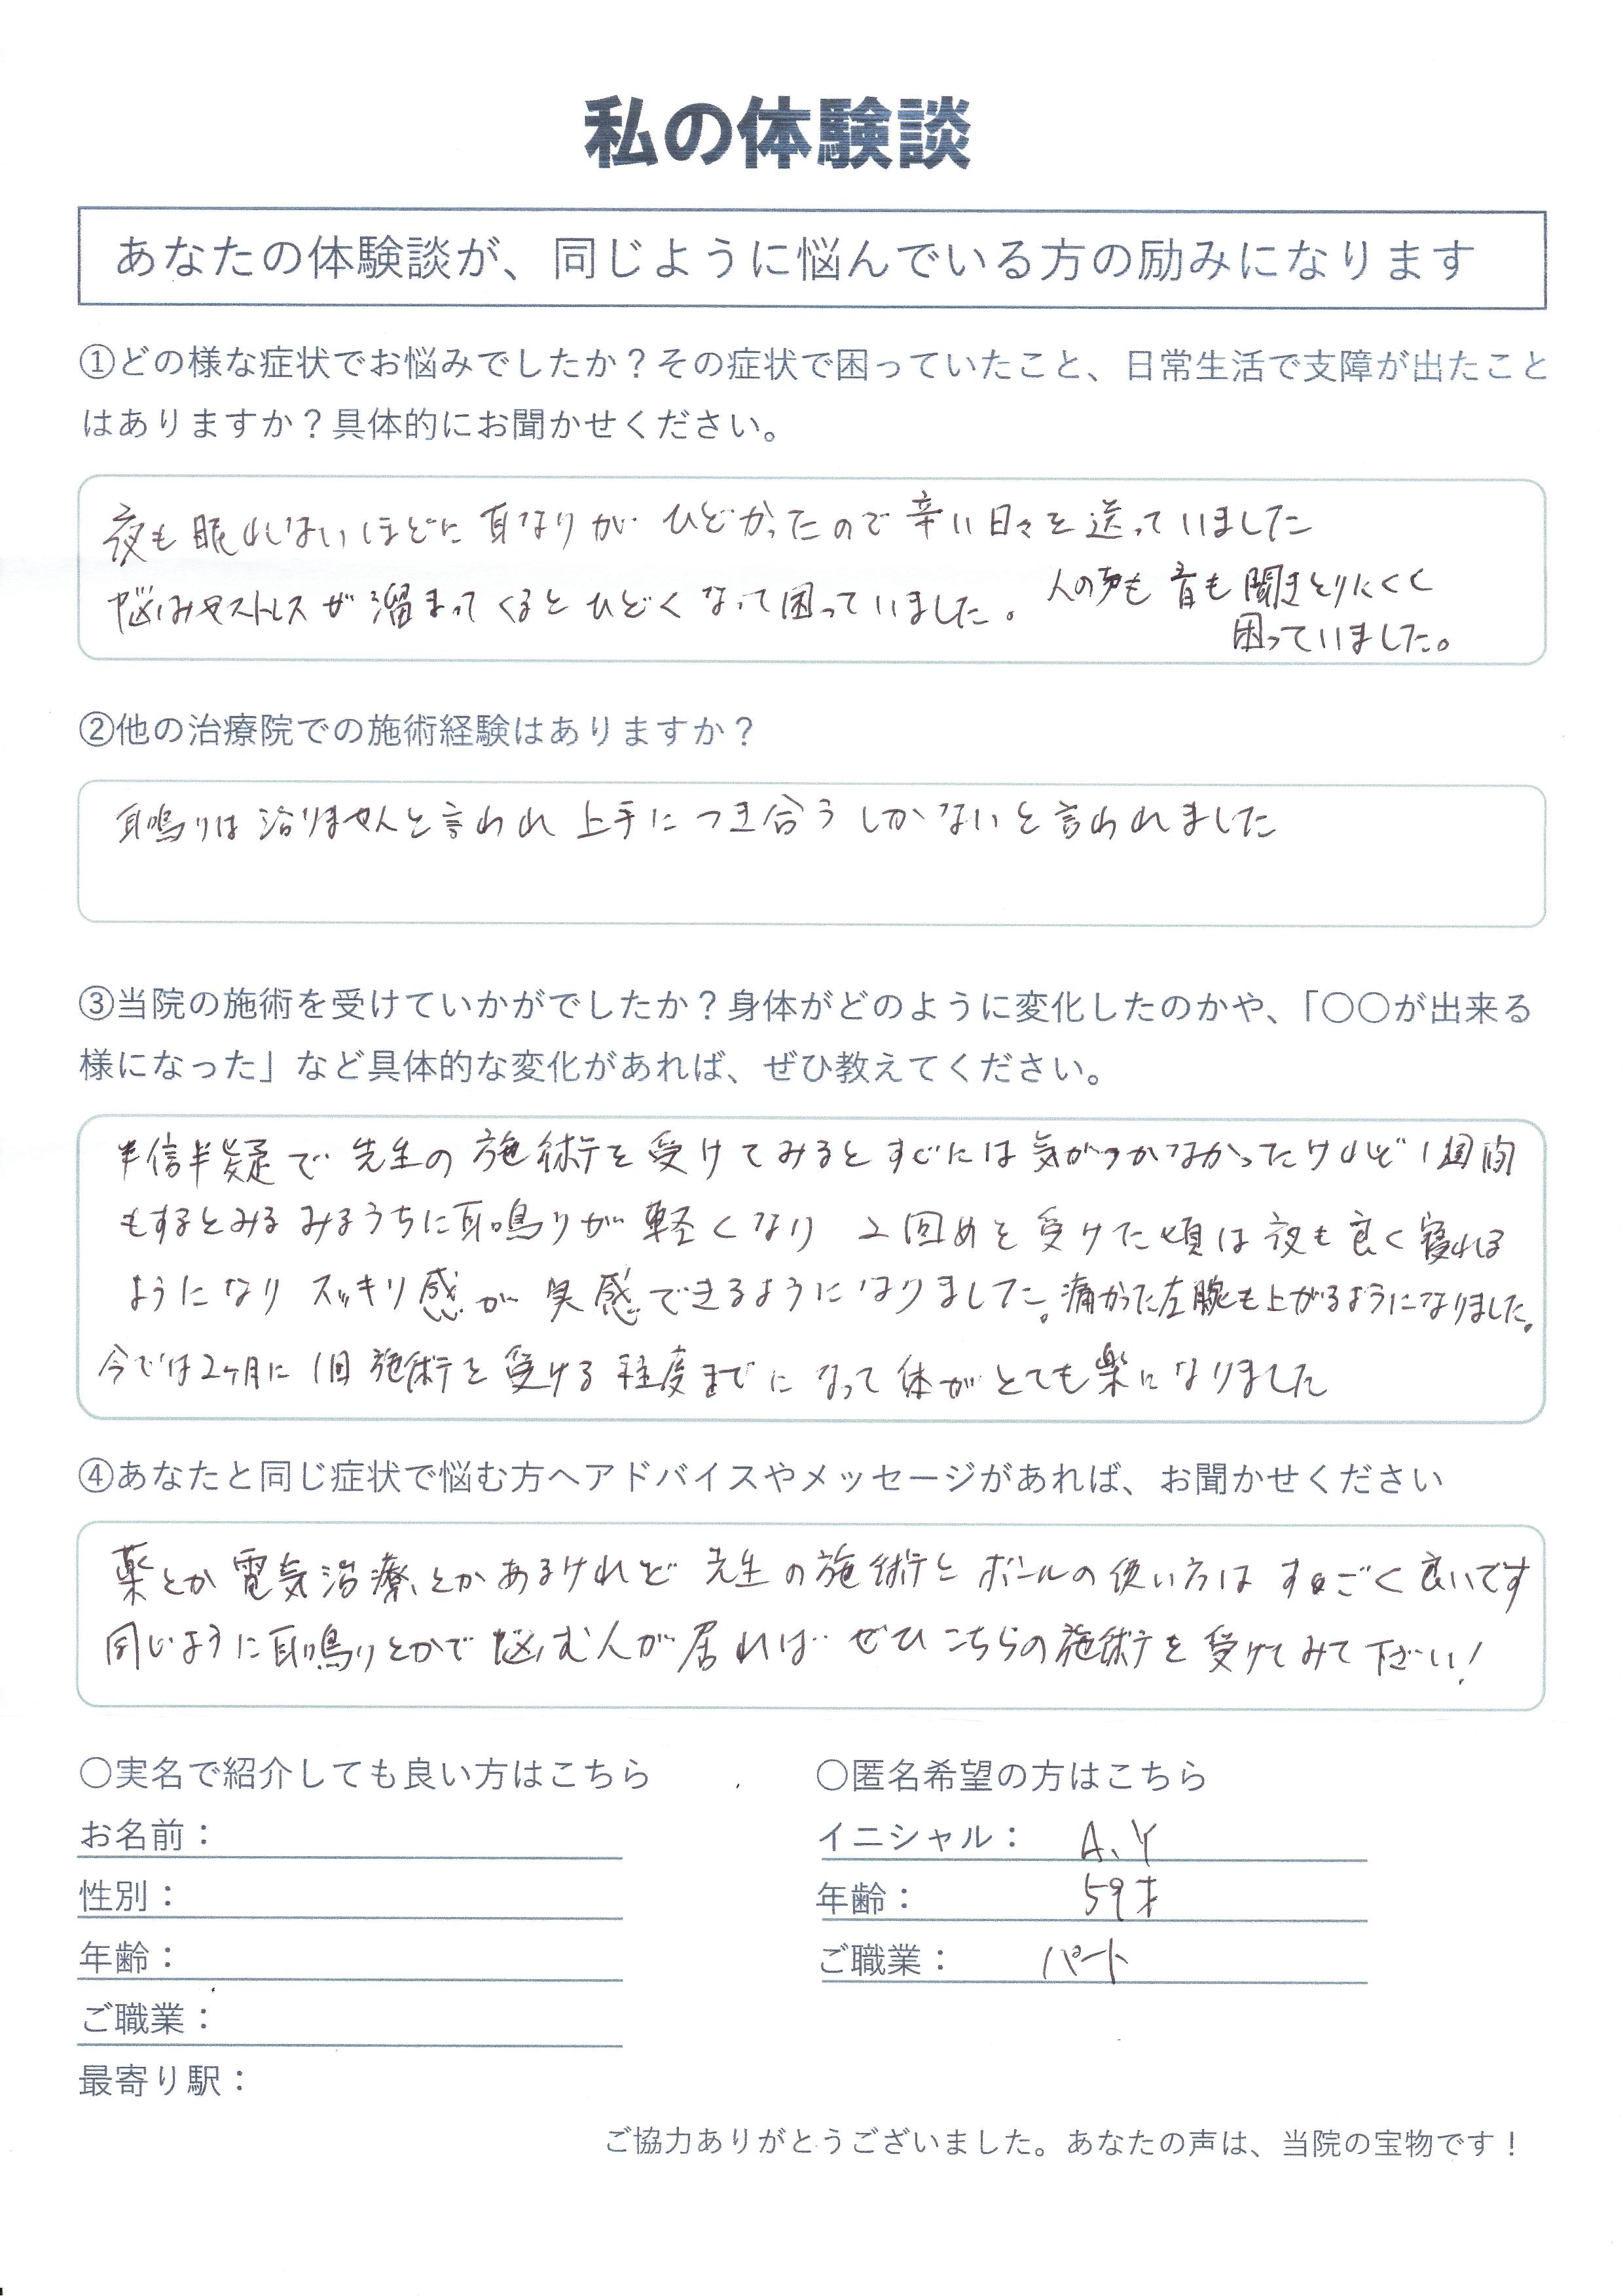 私の体験談
あなたの体験談が、同じように悩んでいる方の励みになります
①どの様な症状でお悩みでしたか？その症状で困っていたこと、日常生活で支障が出たこと
はありますか？具体的にお聞かせください。
夜も眠れないほどに耳なりがひどかったので辛い日々を送っていました
悩みやストレスが溜まってくるとひどくなって困っていました。人の声も音も聞きとりにくく
困っていました。
②他の治療院での施術経験はありますか？
耳鳴りは治りませんと言われ上手につき合うしかないと言われました
③当院の施術を受けていかがでしたか？身体がどのように変化したのかや、「〇〇が出来る
様になった」など具体的な変化があれば、ぜひ教えてください。
半信半疑で先生の施術を受けてみるとすぐには気がつかなかったけれど1週間
もするとみるみるうちに耳鳴りが軽くなり2回めを受けた頃は夜も良く寝れる
ようになりスッキリ感が実感できるようになりました。痛かった左腕も上がるようになりました。
今では2ヶ月に1回施術を受ける程度までになって体がとても楽になりました
④あなたと同じ症状で悩む方へアドバイスやメッセージがあれば、お聞かせください
薬とか電気治療とかあるけれど先生の施術とボールの使い方はすごく良いです
同じように耳鳴りとかで悩む人が居ればぜひこちらの施術を受けてみて下さい！
〇実名で紹介しても良い方はこちら
お名前：
性別：
年齢：
ご職業：
最寄り駅：
〇匿名希望の方はこちら
イニシャル： A、Y
年齢： 59才
ご職業： パート
ご協力ありがとうございました。あなたの声は、当院の宝物です！